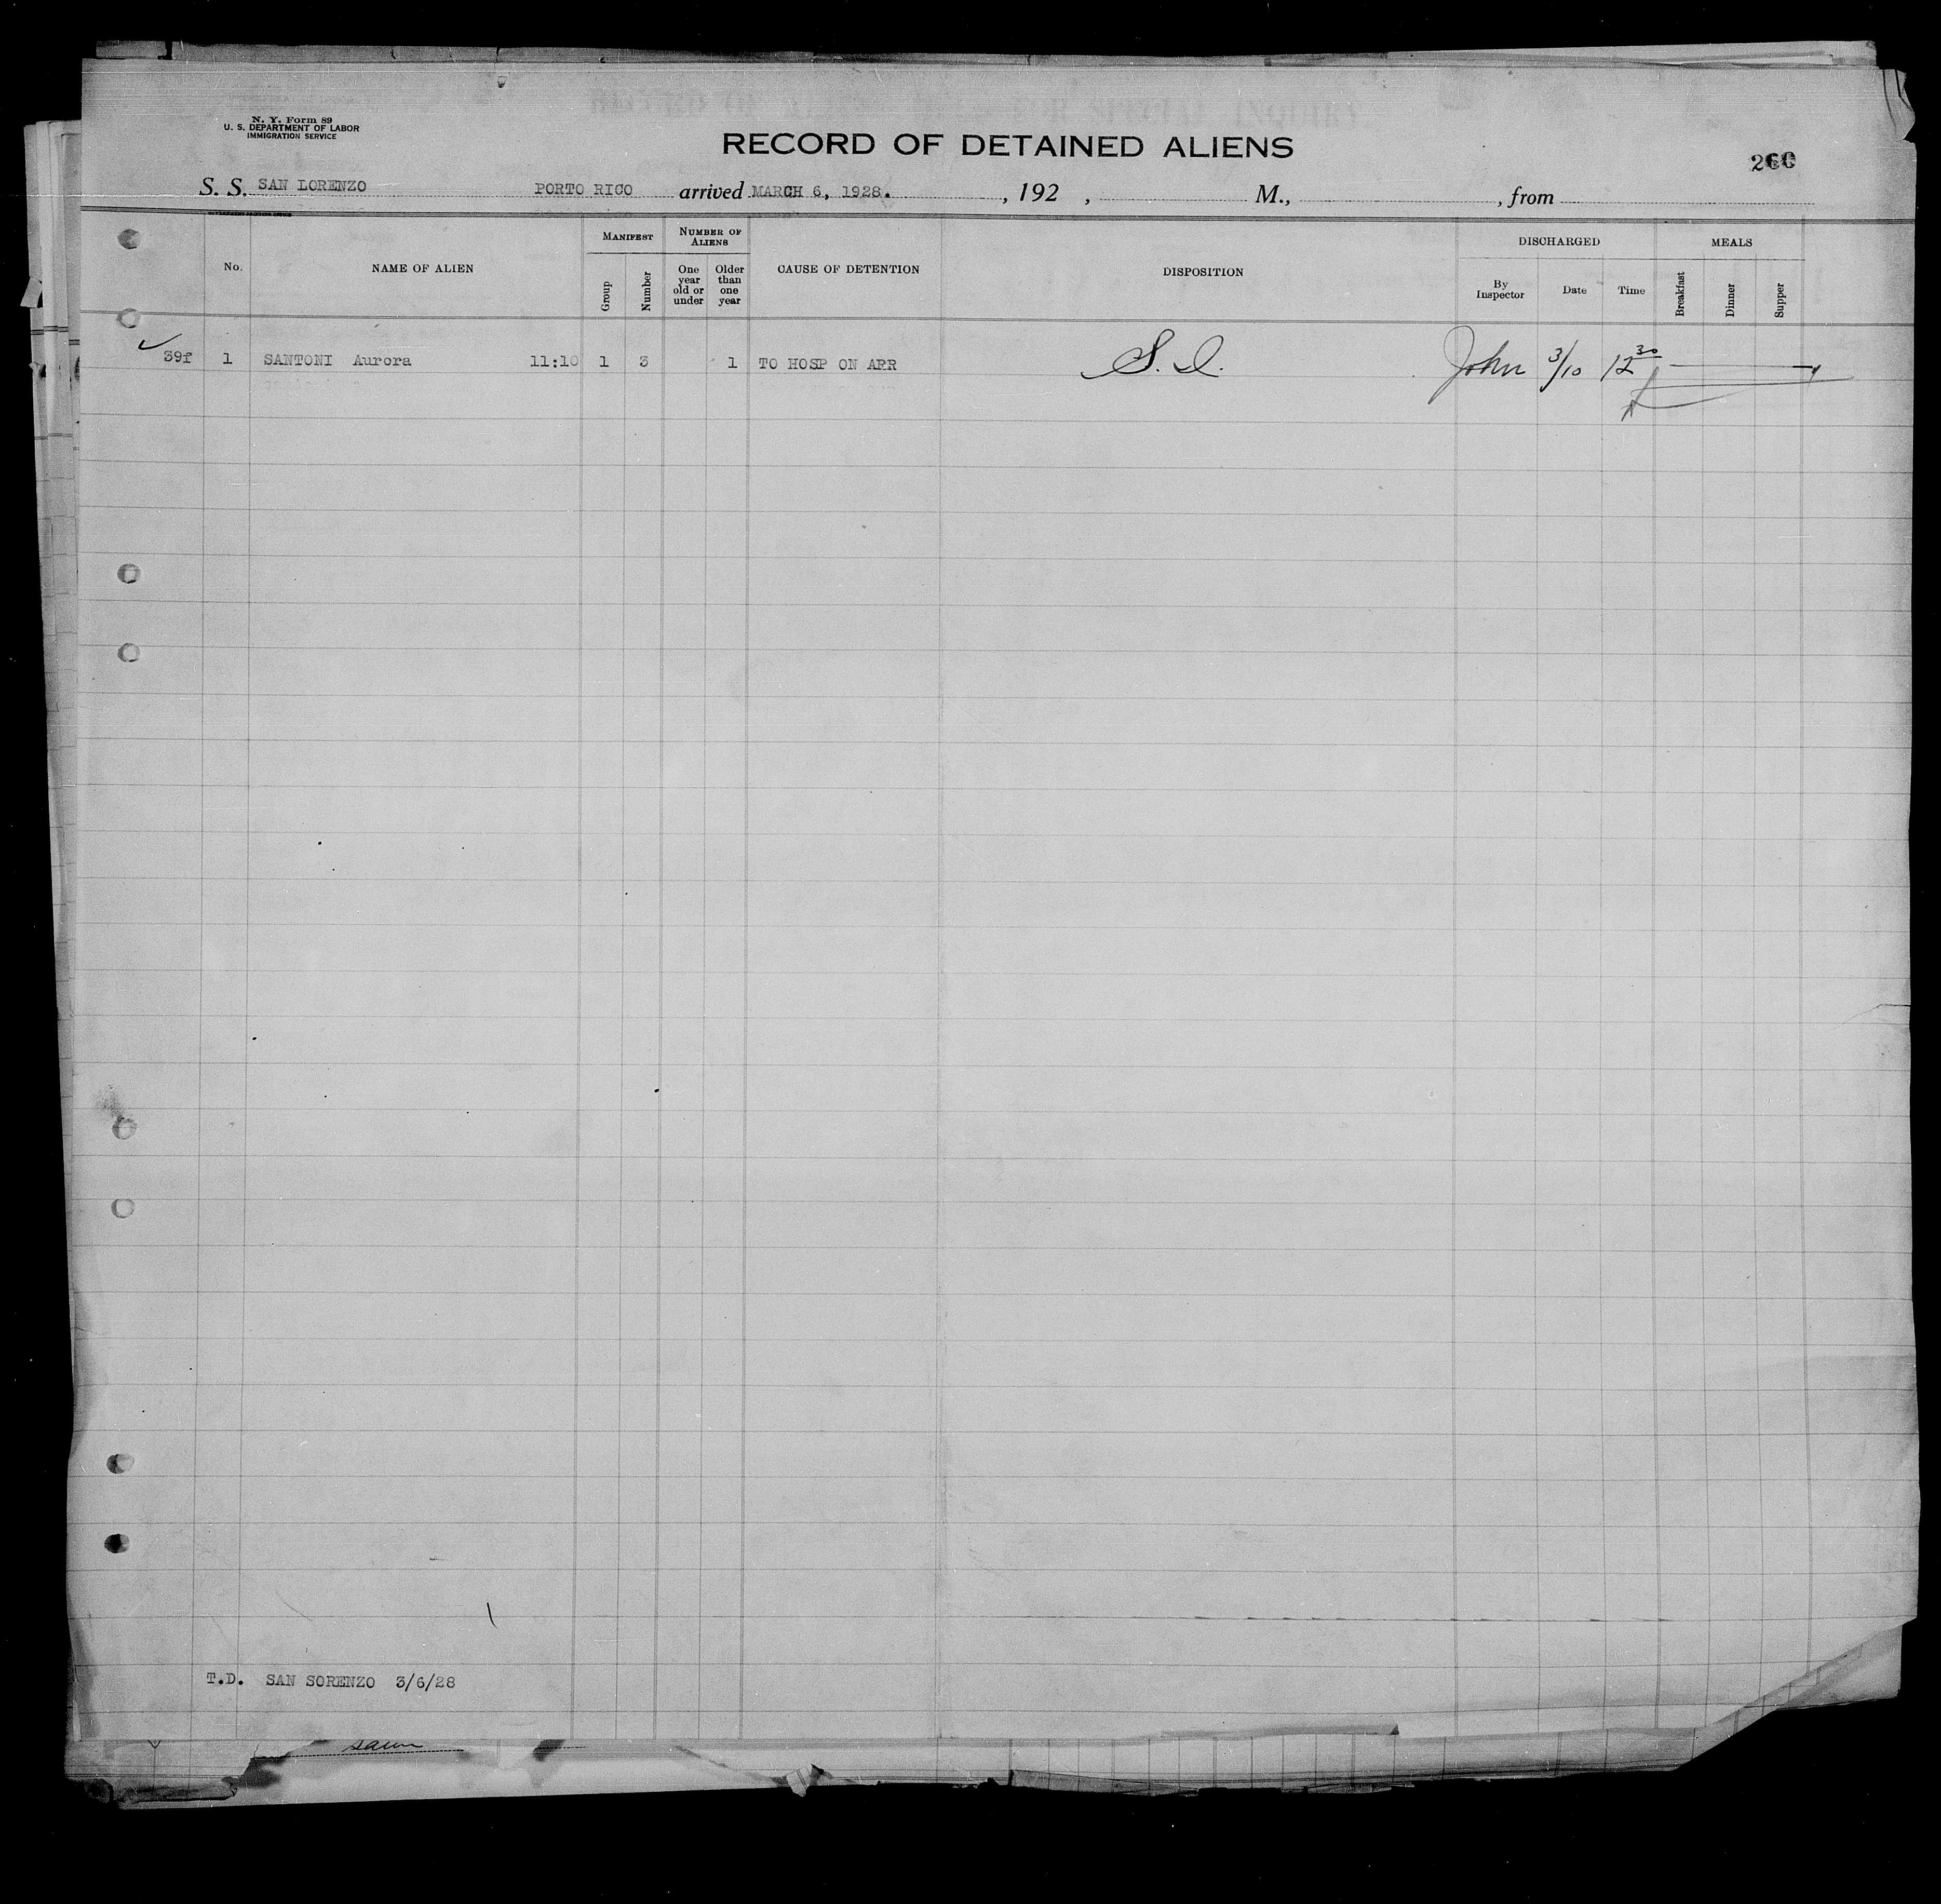 RECORD OF ALIENS HELD FOR SPECIAL INQUIRY
N. Y. Form 89
U. S. DEPARTMENT OF LABOR
IMMIGRATION SERVICE
RECORD OF DETAINED ALIENS
260
S. S. SAN LORENZO PORTO RICO arrived MARCH 6, 1928. , 192 , M., , from
No. NAME OF ALIEN MANIFEST Group Number NUMBER OF ALIENS One year old or under Older than one year CAUSE OF DETENTION DISPOSITION DISCHARGED By Inspector Date Time MEALS Breakfast Dinner Supper
39f 1 SANTONI Aurora 11:10 1 3 1 TO HOSP ON ARR S. I. John 3/10 12 30
T.D. SAN SORENZO 3/6/28